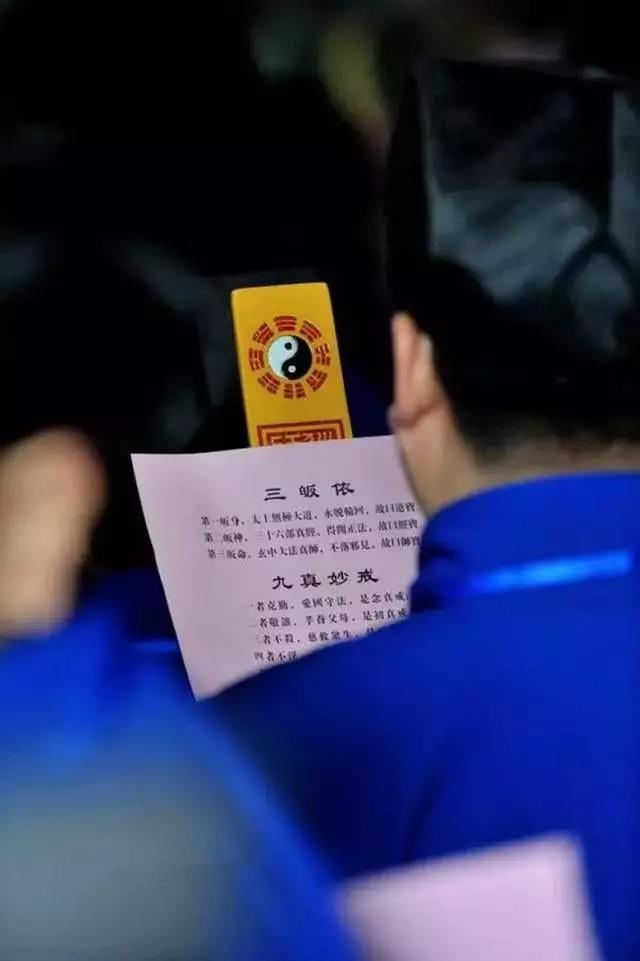 三皈依
第一皈身，太上無極大道，永脫輪回，故曰道寶
第二皈神，三十六部真經，得聞正法，故曰經寶
第三皈命，玄中大法真師，不落邪見，故曰師寶
九真妙戒
一者克勤，愛國守法，是念真戒；
二者敬讓，孝養父母，是初真戒
三者不殺，慈救衆生，
四者不淫，